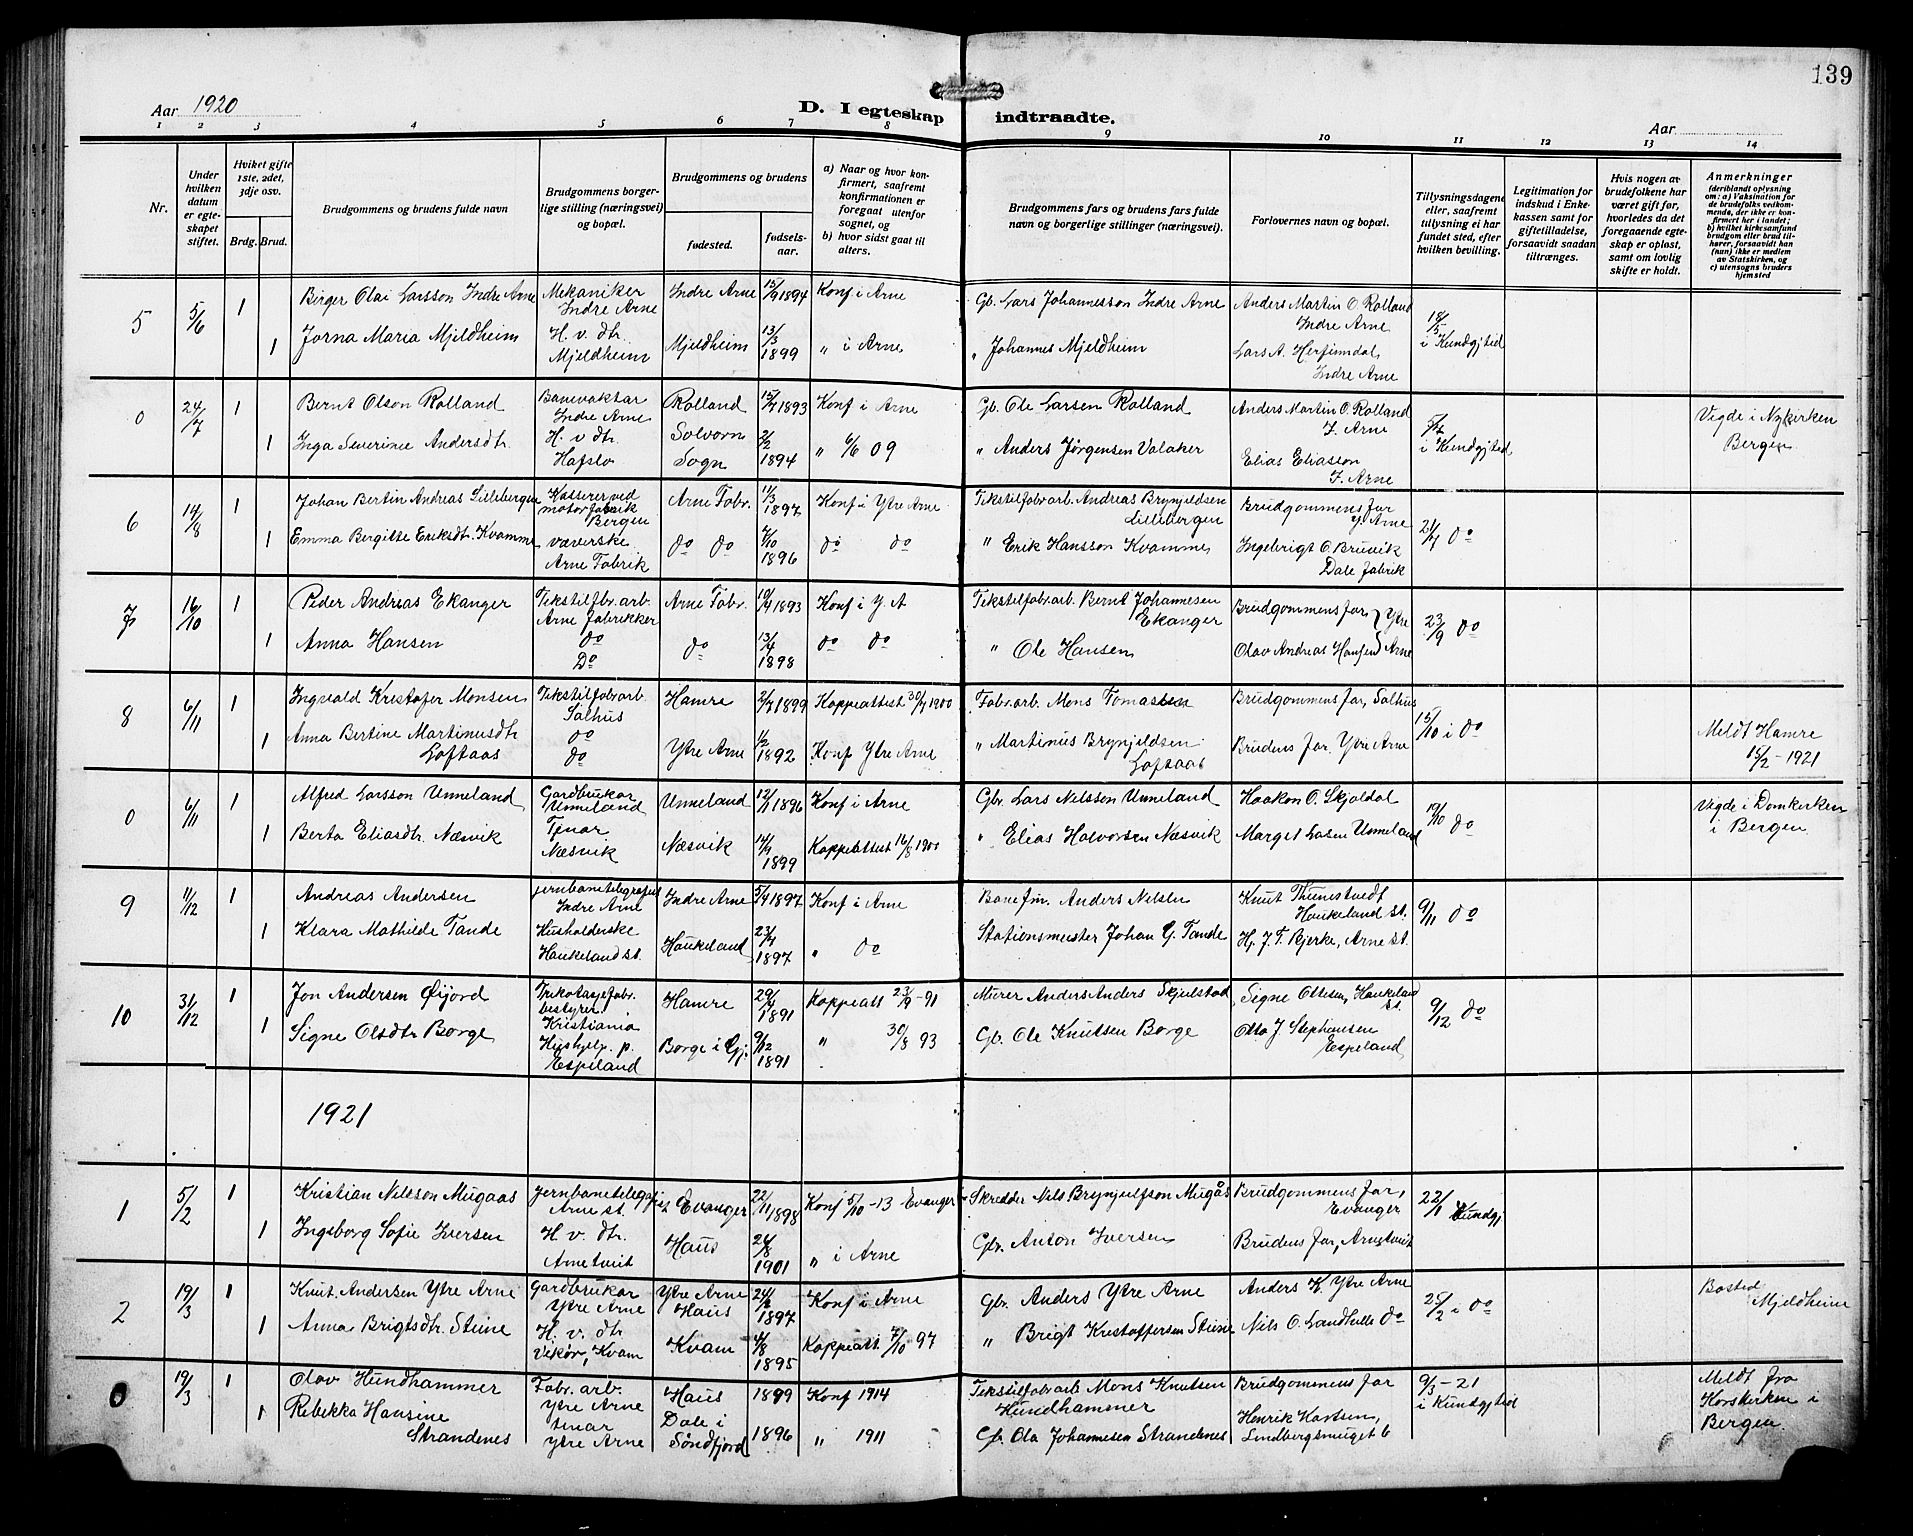 139
Aar 1920
D. I egteskap indtraadte.
Aar
1 2 3 4 5 6 7 8 9 10 11 12 13 14
Nr.
Under hvilken datum er egteskapet stiftet.
Hviket gifte 1ste, 2det, 3dje osv.
Brdg. Brud.
Brudgommens og brudens fulde navn
Brudgommens borgerlige stilling (næringsvei) og bopæl.
Brudgommens og brudens
fødested.
fødselsaar.
a) Naar og hvor konfirmert, saafremt konfirmationen er foregaat utenfor sognet, og
b) hvor sidst gaat til alters.
Brudgommens fars og brudens fars fulde navn og borgerlige stillinger (næringsvei).
Forlovernes navn og bopæl.
Tillysningsdagene eller, saafremt tillysning ei har fundet sted, efter hvilken bevilling.
Legitimation for indskud i Enkekassen samt for giftetilladelse, forsaavidt saadan tiltrænges.
Hvis nogen av brudefolkene har været gift før, hvorledes da det foregaaende egteskap er opløst, samt om lovlig skifte er holdt.
Anmerkninger
(deriblandt oplysning om: a) Vaksination for de brudefolks vedkommende, der ikke er konfirmert her i landet; b) hvilket kirkesamfund brudgom eller brud tilhører, forsaavidt han (hun) ikke er medlem av Statskirken, og c) utensogns bruders hjemsted
5 5/6 1 Birger Olai Larsson Indre Arne Mekaniker Indre Arne Indre Arne 15/9 1894 Konf i Arne Gb. Lars Johannesson Indre Arne Anders Martin O. Rolland Indre Arne 18/5 i Kundgjtid
1 Jorna Maria Mjeldheim H. v. dtr. Mjeldheim Mjeldheim 13/3 1899 " i Arne " Johannes Mjeldheim Lars A. Herfindal, Indre Arne
0 24/7 1 Bernt Olson Rolland Banevaktar Indre Arne Rolland 15/7 1893 Konf i Arne Gb. Ole Larsen Rolland Anders Martin O. Rolland I. Arne i Kundgjtid Vigde i Nykirken Bergen
1 Inga Severine Andersdtr. H. v dtr. Hafslo Solvorn Sogn 2/2 1894 " 6/6 09 " Anders Jørgensen Valaker Elias Eliasson I. Arne
6 14/8 1 Johan Bertin Andreas Lillebergen Kasserer ved motorfabrik Bergen Arne Fabr. 11/3 1897 Konf i Ytre Arne Tekstilfabrarb. Andreas Brynjeldsen Lillebergen Brudgommens far Y. Arne 21/7 do
1 Emma Bergitte Eriksdt. Kvamme væverske Arne Fabrik do do 7/10 1896 do do " Erik Hansson Kvamme Ingebrigt O. Bruvik Dale fabrik
7 16/10 1 Peder Andreas Ekanger Tekstilfbr. arb. Arne Fabrikker Arne Fabr. 10/4 1893 Konf i Y A Tekstilfabr.arb. Bernt Johannesen Ekanger Brudgommens far } Ytre 23/9 do
1 Anna Hansen do Do do 13/4 1898 do do " Ole Hansen Olav Andreas Hansen } Arne
8 6/11 1 Ingvald Kristofer Monsen Tekstilfabr arb. Salhus Hamre 2/7 1899 Koppeattest 30/7 1900 Fabr.arb. Mons Tomassen Brudgommens far, Salhus 15/10 i do Meldt Hamre 15/2 - 1921
1 Anna Bertine Martinusdtr Loftaas do do Ytre Arne 1/2 1892 Konf Ytre Arne " Martinus Brynjeldsen Loftaas Brudens far. Ytre Arne
0 6/11 1 Alfred Larsson Unneland Gardbrukar Unneland Unneland 12/11 1896 Konf i Arne Gbr. Lars Nilsson Unneland Haakon O. Skjoldal 19/10 do Vigde i Domkirken i Bergen
1 Berta Eliasdtr. Næsvik Tenar Næsvik Næsvik 14/9 1899 Koppeattest 16/8 1900 " Elias Halvorsen Næsvik Marget Lasen Unneland
9 11/12 1 Andreas Andersen jernbanetelegrafist Indre Arne Indre Arne 5/4 1897 Konf i Arne Banefm. Anders Nilsen Knut Thunestvedt Haukeland st. 9/11 do
1 Klara Mathilde Tande Husholderske Haukeland st. Haukeland 23/4 1897 " do Stationsmester Johan G. Tande Hj. J. F. Bjerke, Arne st.
10 31/12 1 Jon Andersen Øijord Trikotasjefabr. bestyrer, Kristiania Hamre 29/4 1891 Koppeatt 23/9 - 91 Murer Anders Anders Skjelstad Signe Ottesen, Haukeland st. 9/12 do
1 Signe Olsdtr Borge Hushjelp. p. Espeland Borge i Gj. 9/12 1891 " 30/8 93 Gb. Ole Knutsen Borge Otto J Stephansen Espeland
1921
1 5/2 1 Kristian Nilsson Mugaas Jernbanetelegafist Arne st. Evanger 22/11 1898 Konf 5/10 - 13 Evanger Skredder Nils Brynjulfson Mugås Brudgommens far, Evanger 22/1 Kundgj
1 Ingsborg Sofie Iversen H. v. dtr. Arnetveit Haus 24/8 1901 " i Arne Gbr. Anton Iversen Brudens far, Arnetveit
2 19/3 1 Knut. Andersen Ytre Arne Gardbrukar Ytre Arne Ytre Arne Haus 24/2 1897 Konf i Arne Gbr. Anders Ytre Arne Anders K. Ytre Arne 25/2 i do Bosted Mjeldheim
1 Anna Brigtsdtr. Steine H. v. dtr Vikør, Kvam Kvam 4/8 1895 Koppeatt. 7/10 97 " Brigt Kristoffersen Steine Nils O. Landhulle do
0 19/3 1 Olav Hundhammer Fabr. arb. Ytre Arne Haus 1899 Konf 1914 Tekstilfabr arb. Mons Knutsen Hundhammer Brudgommens far 9/3 - 21 i Kundgjtid Meldt fra Korskirken i Bergen
1 Rebekka Hansine Strandenes tenar Ytre Arne Dale i Søndfjord 1896 " 1911 Gb. Ola Johannesen Strandenes Henrik Karlsen, Lindbergsmuget 6